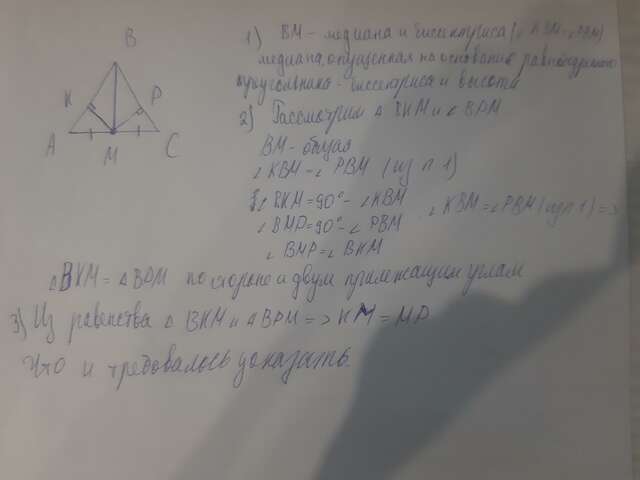 B
K
P
A
M
C
1) BM - медиана и биссектриса (∠ KBM=∠PBM)
медиана, опущенная на основание равнобедренного
треугольника - биссектриса и высота
2) Рассмотрим △ BKM и ∠ BPM
BM - общая
∠ KBM - ∠ PBM (из п 1)
∠ BKM = 90° - ∠ KBM
∠ KBM = ∠ PBM (из п 1) =>
∠ BMP = 90° - ∠ PBM
∠ BMP = ∠ BKM
△ BKM = △ BPM по стороне и двум прилежащим углам
3) Из равенства △ BKM и △ BPM => KM = MP
Что и требовалось доказать.